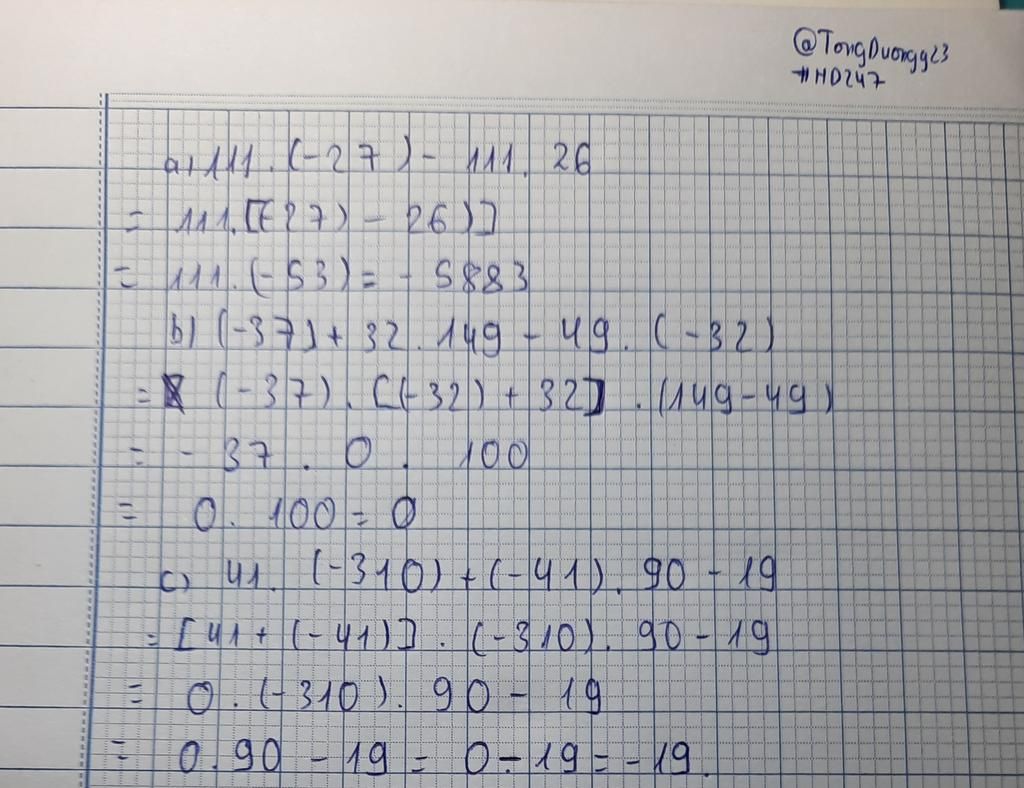 @TongDuongg23
#HD247
a) 111. (-27) - 111. 26
= 111. [(-27) - 26)]
= 111. (-53) = - 5883
b) (-37) + 32. 149 - 49. (-32)
= (-37). [(-32) + 32]. (149-49)
= - 37. 0. 100
= 0. 100 = 0
c) 41. (-310) + (-41). 90 - 19
= [41 + (-41)]. (-310). 90 - 19
= 0. (-310). 90 - 19
= 0. 90 - 19 = 0 - 19 = -19.